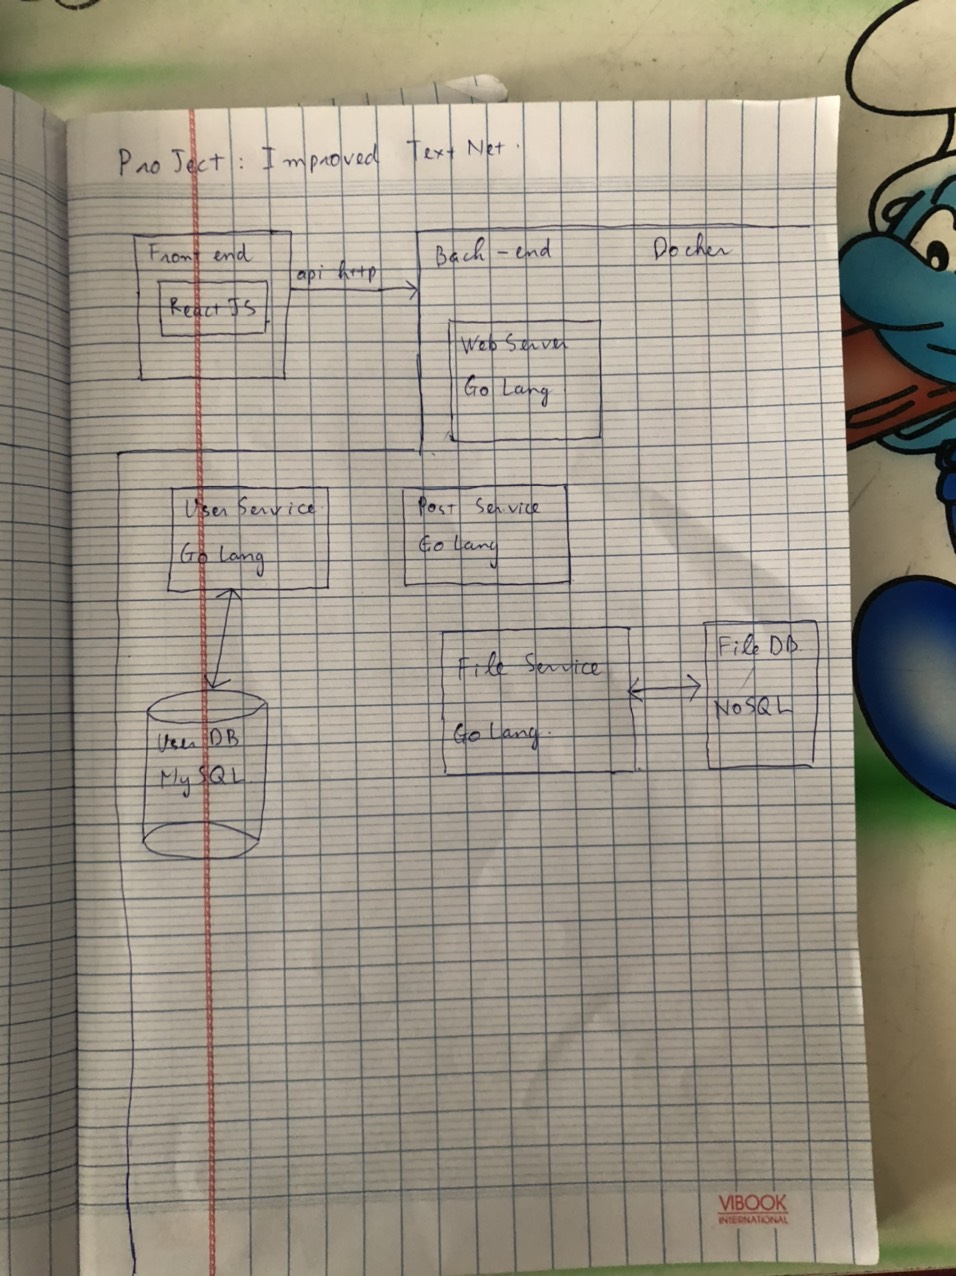 ProJect: Improved Text Net.
Front end
React JS
api http
Back-end
Docker
Web Server
Go Lang
User Service
Go Lang
Post Service
Go Lang
File Service
Go Lang.
File DB.
NoSQL
User DB
MySQL
VIBOOK
INTERNATIONAL